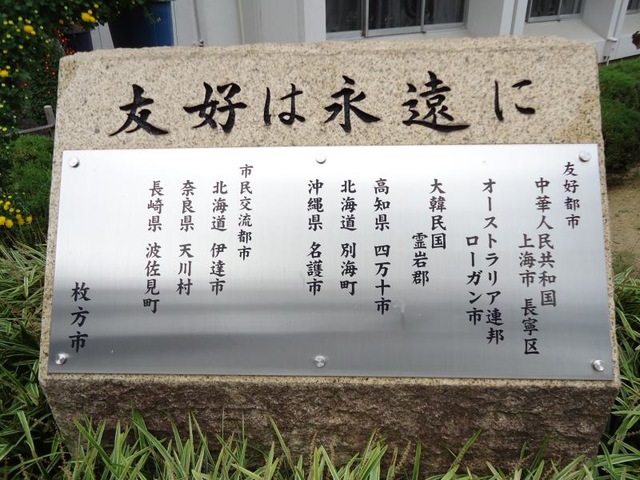 友好は永遠に
友好都市
中華人民共和国
上海市 長寧区
オーストラリア連邦
ローガン市
大韓民国
霊岩郡
高知県 四万十市
北海道 別海町
沖縄県 名護市
市民交流都市
北海道 伊達市
奈良県 天川村
長崎県 波佐見町
枚方市